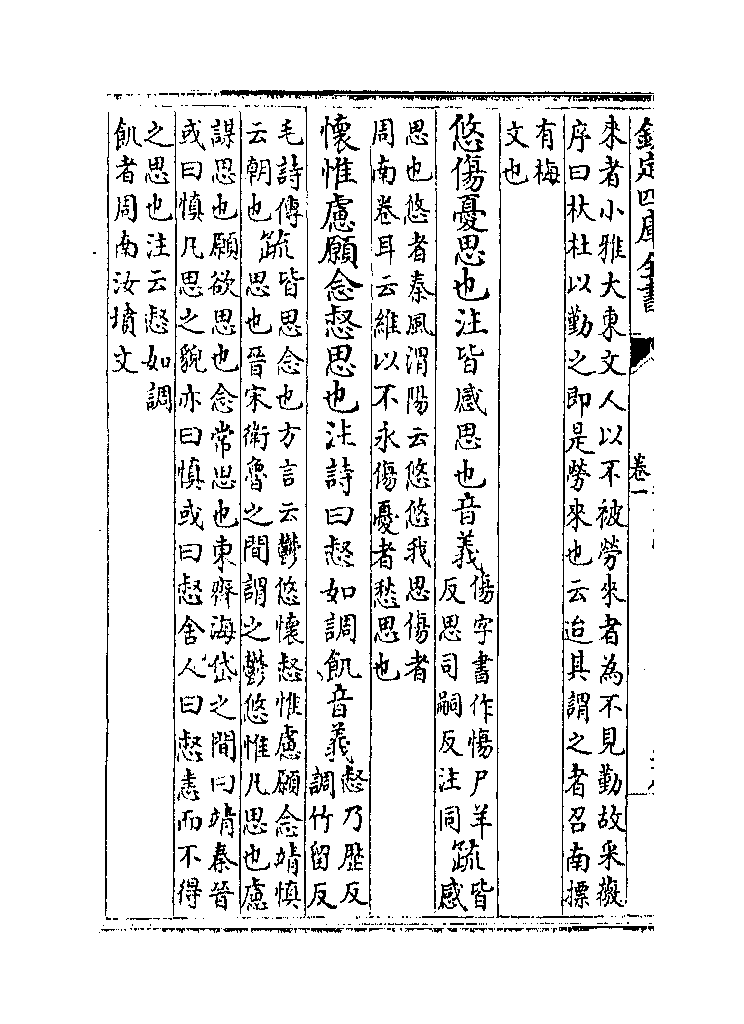 欽定四庫全書
卷一
來者小雅大東文人以不被勞來者為不見勤故采薇
序曰杕杜以勤之即是勞來也云迨其謂之者召南摽
有梅
文也
悠傷憂思也注皆感思也音義
傷字書作慯尸羊
反思司嗣反注同
疏
皆
感
思也悠者秦風渭陽云悠悠我思傷者
周南卷耳云維以不永傷憂者愁思也
懷惟慮願念惄思也注詩曰惄如調飢音義
惄乃歷反
調竹留反
毛詩傳
云朝也
疏
皆思念也方言云鬱悠懷惄惟慮願念靖慎
思也晉宋衛魯之間謂之鬱悠惟凡思也慮
謀思也願欲思也念常思也東齊海岱之間曰靖秦晉
或曰慎凡思之貌亦曰慎或曰惄舍人曰惄恚而不得
之思也注云惄如調
飢者周南汝墳文